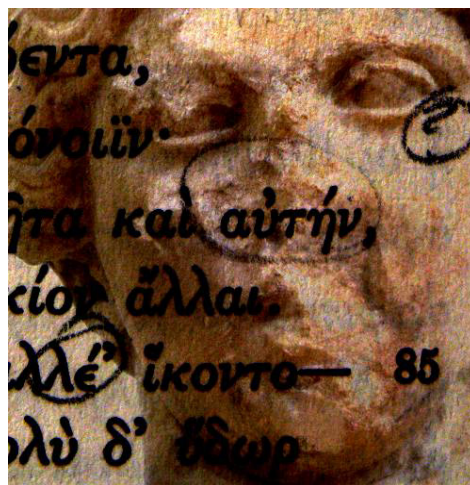 όεντα,
?
όνοιϊν·
ῆτα καὶ αὐτήν,
κίον ἄλλαι.
αλλέ’ ἵκοντο— 85
ολὺ δ’ ὕδωρ